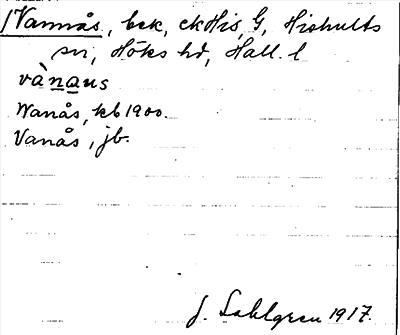 Vannås, bek, ekHis G, Hishults
sn, Höks hd, Hall. l
vànaus
Wanås, kb 1900.
Vanås, jb.
J. Sahlgren 1917.